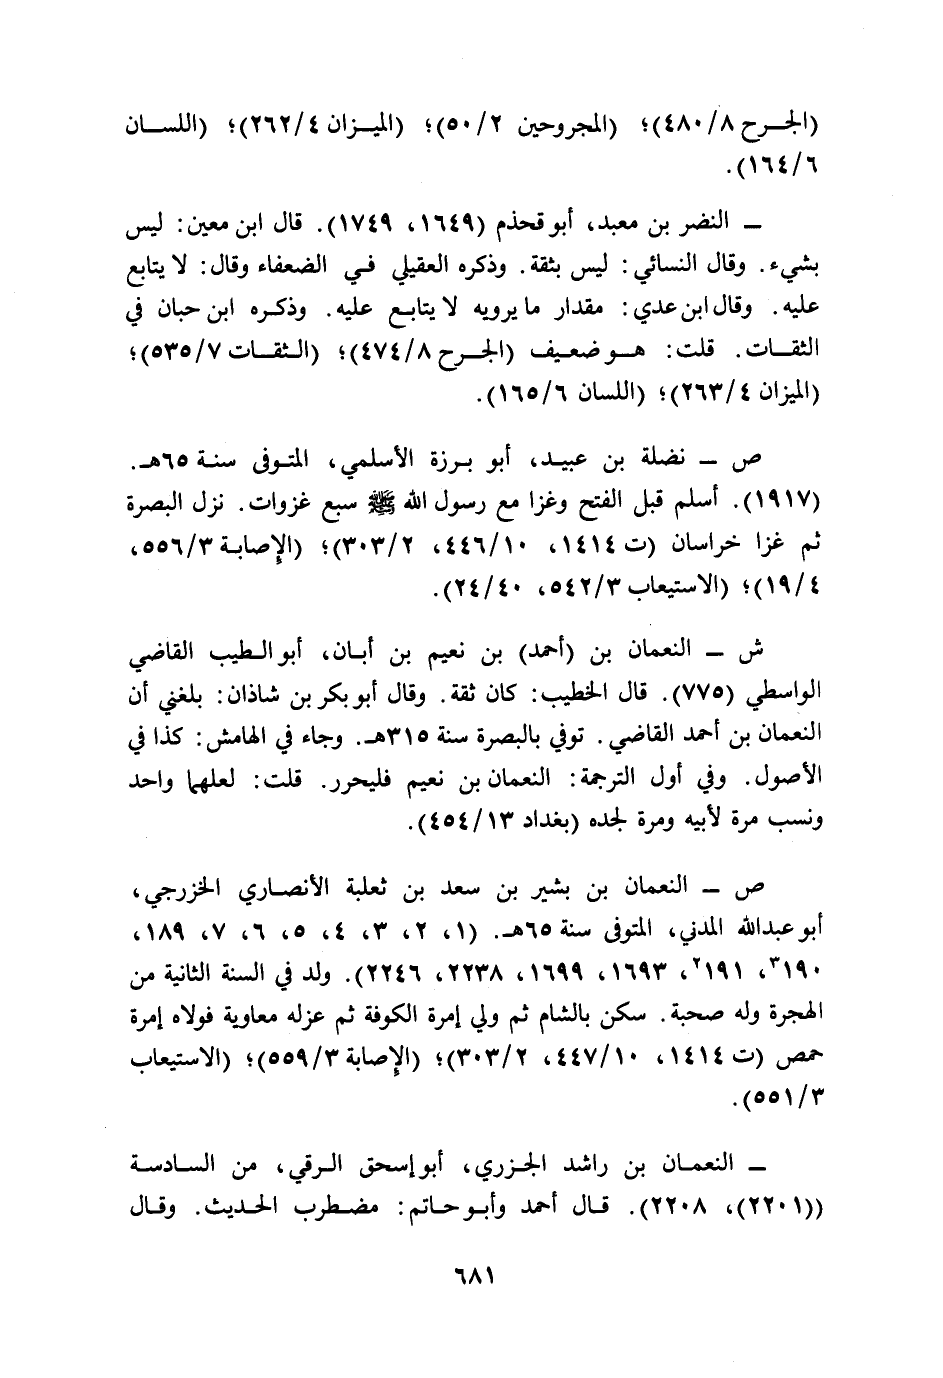 (الجرح ٤٨٠/٨)؛ (المجروحين ٥٠/٢)؛ (الميزان ٢٦٢/٤)؛ (اللسان
١٦٤/٦).
ــ النضر بن معبد، أبو قحذم (١٦٤٩، ١٧٤٩). قال ابن معين: ليس
بشيء. وقال النسائي: ليس بثقة. وذكره العقيلي في الضعفاء وقال: لا يتابع
عليه. وقال ابن عدي: مقدار ما يرويه لا يتابع عليه. وذكره ابن حبان في
الثقات. قلت: هو ضعيف (الجرح ٤٧٤/٨)؛ (الثقات ٥٣٥/٧)؛
(الميزان ٢٦٣/٤)؛ (اللسان ١٦٥/٦).
ص ــ نضلة بن عبيد، أبو برزة الأسلمي، المتوفى سنة ٦٥هـ.
(١٩١٧). أسلم قبل الفتح وغزا مع رسول الله ﷺ سبع غزوات. نزل البصرة
ثم غزا خراسان (ت ١٤١٤، ٤٤٦/١٠، ٣٠٣/٢)؛ (الإصابة ٥٥٦/٣،
١٩/٤)؛ (الاستيعاب ٥٤٢/٣، ٢٤/٤٠).
ش ــ النعمان بن (أحمد) بن نعيم بن أبان، أبو الطيب القاضي
الواسطي (٧٧٥). قال الخطيب: كان ثقة. وقال أبو بكر بن شاذان: بلغني أن
النعمان بن أحمد القاضي. توفي بالبصرة سنة ٣١٥هـ. وجاء في الهامش: كذا في
الأصول. وفي أول الترجمة: النعمان بن نعيم فليحرر. قلت: لعلهما واحد
ونسب مرة لأبيه ومرة لجده (بغداد ٤٥٤/١٣).
ص ــ النعمان بن بشير بن سعد بن ثعلبة الأنصاري الخزرجي،
أبو عبدالله المدني، المتوفى سنة ٦٥هـ. (١، ٢، ٣، ٤، ٥، ٦، ٧، ١٨٩،
١٩٠³، ١٩١²، ١٦٩٣، ١٦٩٩، ٢٢٣٨، ٢٢٤٦). ولد في السنة الثانية من
الهجرة وله صحبة. سكن بالشام ثم ولي إمرة الكوفة ثم عزله معاوية فولاه إمرة
حمص (ت ١٤١٤، ٤٤٧/١٠، ٣٠٣/٢)؛ (الإصابة ٥٥٩/٣)؛ (الاستيعاب
٥٥١/٣).
ــ النعمان بن راشد الجزري، أبو إسحق الرقي، من السادسة
((٢٢٠١)، ٢٢٠٨). قال أحمد وأبو حاتم: مضطرب الحديث. وقال
٦٨١